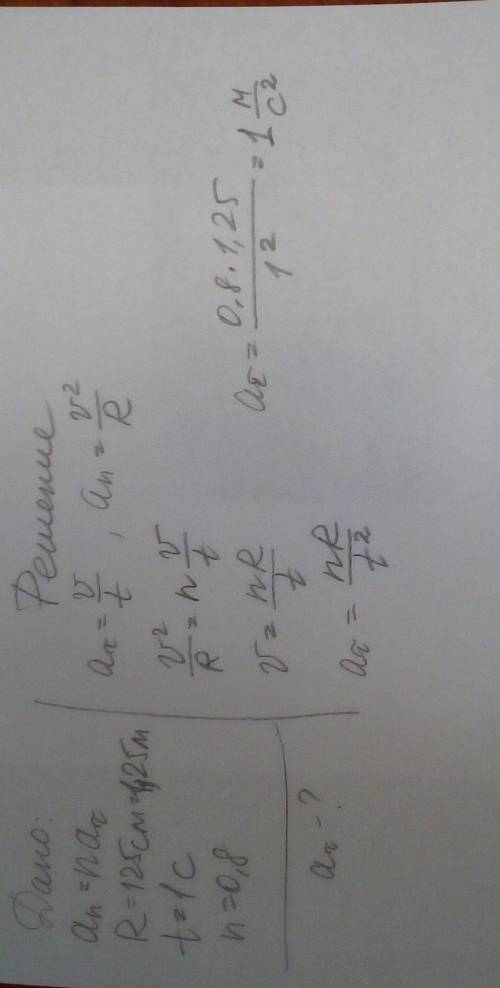 Дано:
aₙ = n a_τ
R = 125см = 1,25м
t = 1 с
n = 0,8
a_τ - ?
Решение
a_τ = v/t , aₙ = v²/R
v²/R = n v/t
v = nR/t
a_τ = nR/t²
a_τ = 0,8·1,25/1² = 1 м/с²